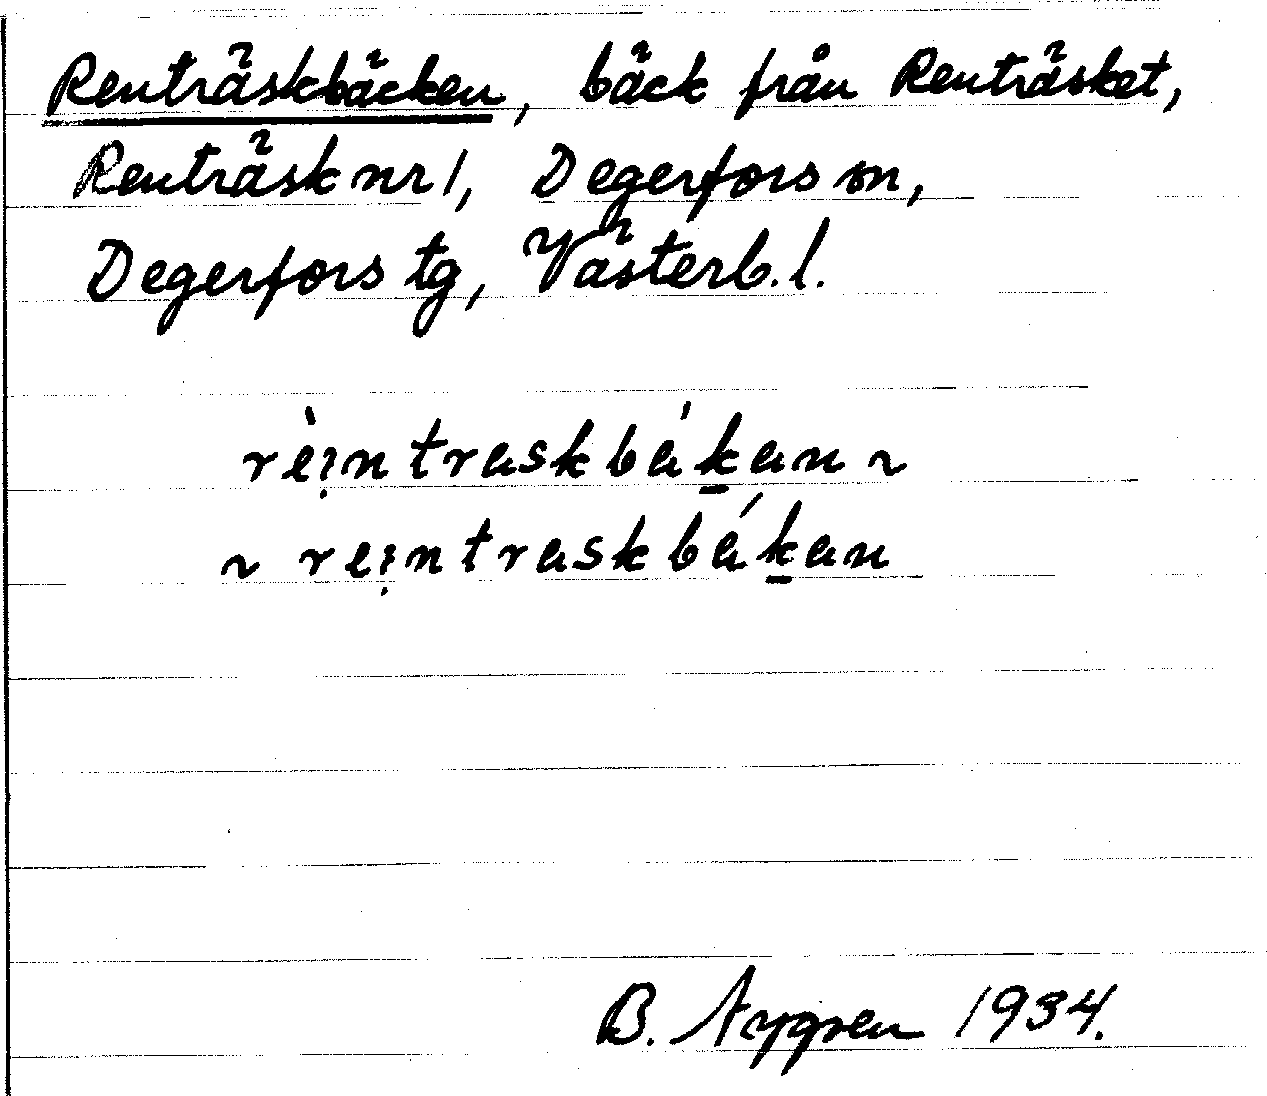 Renträskbäcken, bäck från Renträsket,
Renträsk nr 1, Degerfors sn,
Degerfors tg, Västerb. l.
rèi̩ntraskbák̲an ~
~ rei̩ntraskbák̲an
B. Nygren 1934.